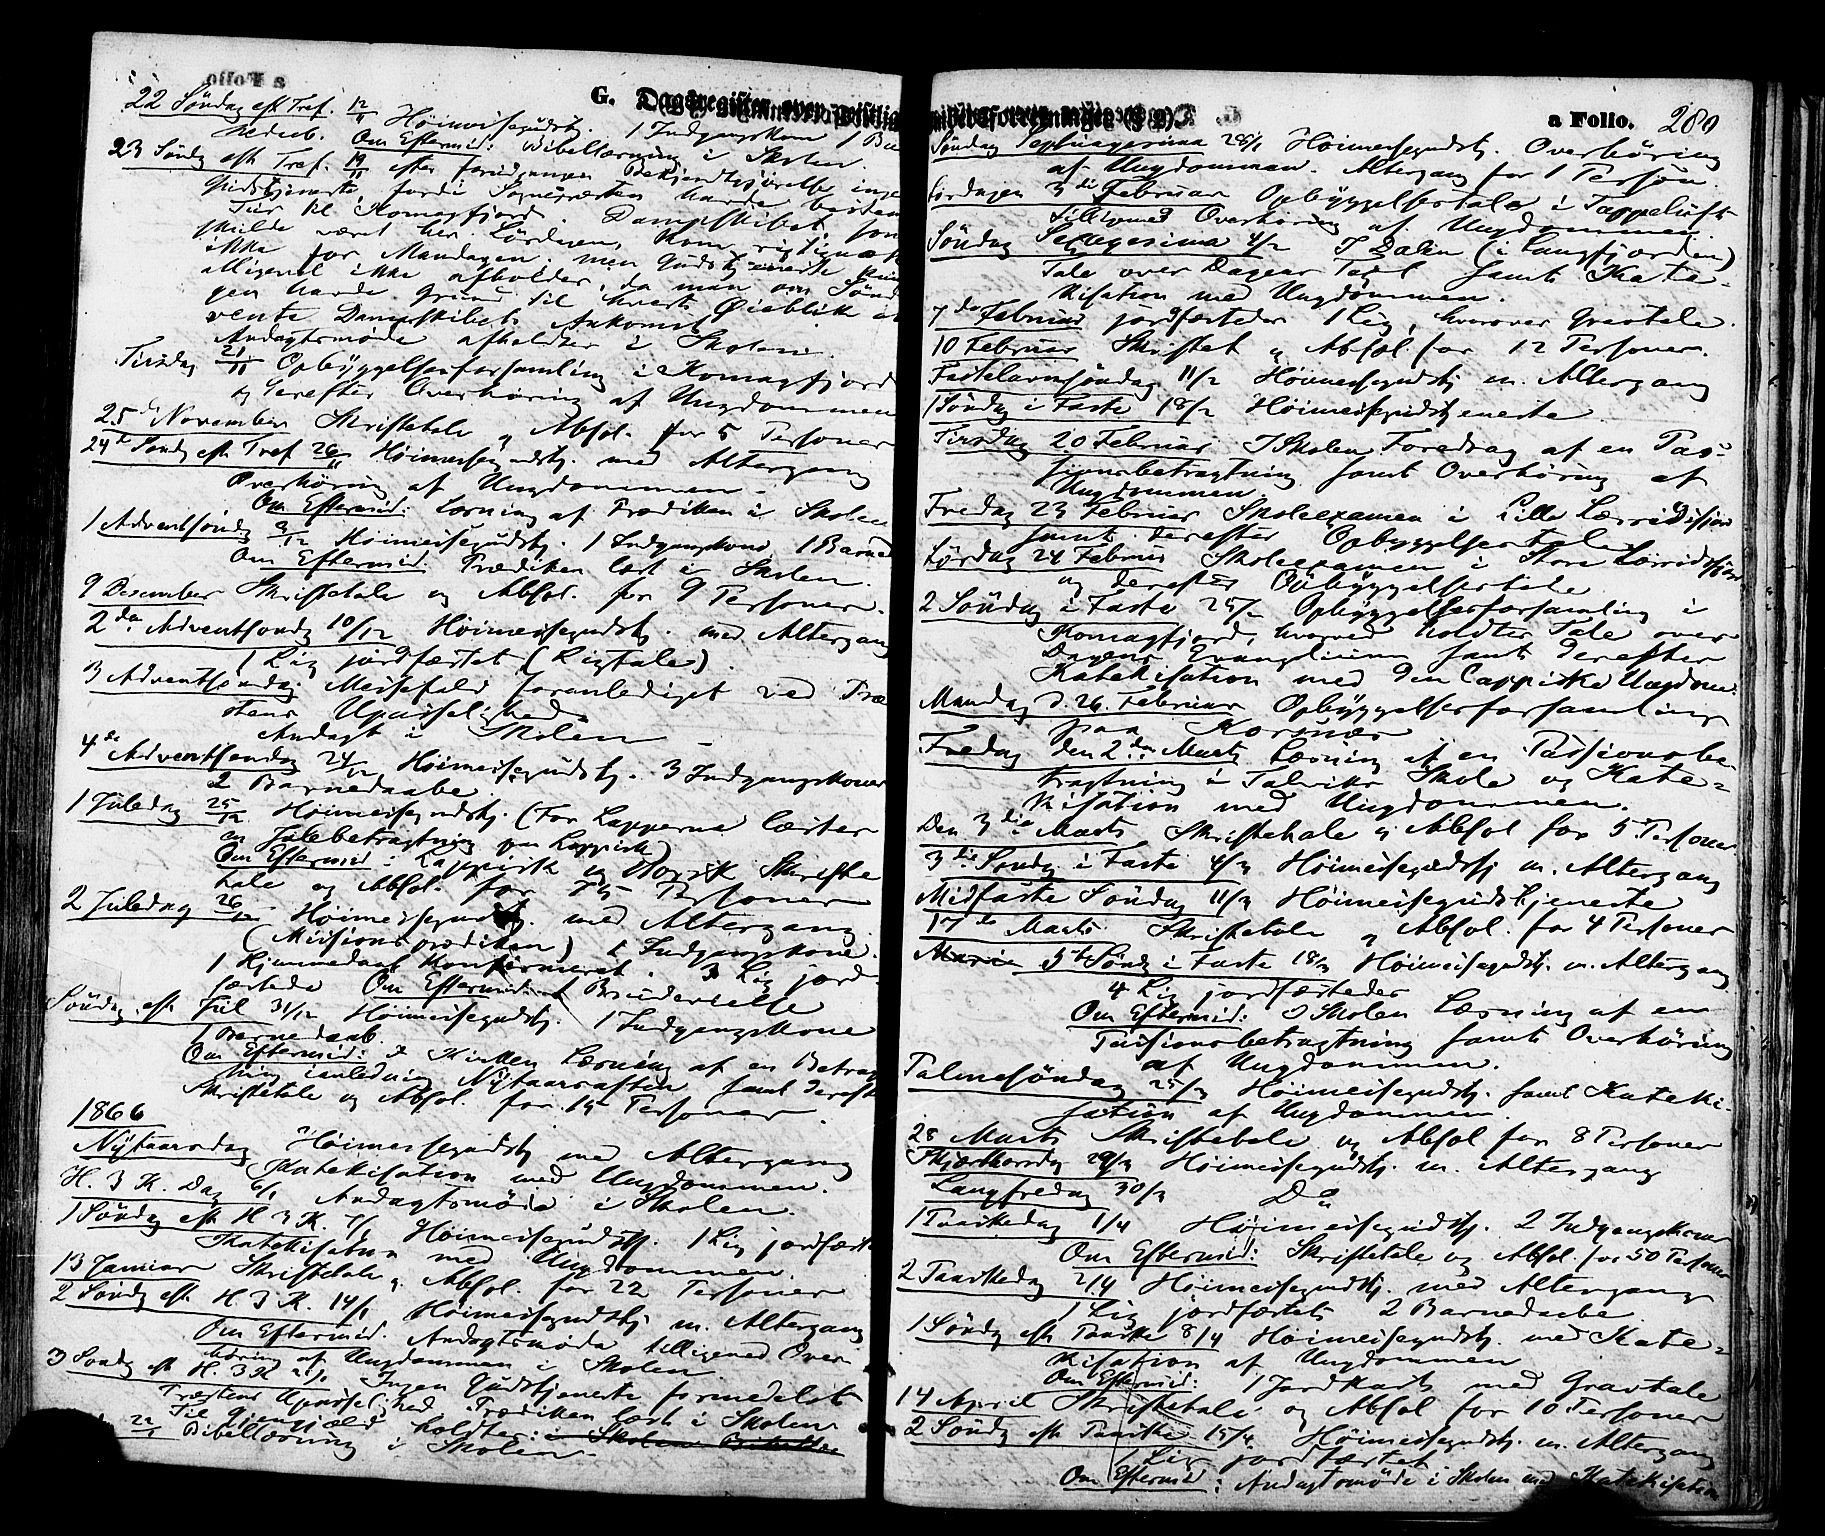 a Folio.
G. Dagsregister over geistlige
22 Søndag eft Tref. 12/11 Høimessegudstj. 1 Indgangskone 1 Bar
nedaab. Om Eftermid: Bibellæsning i Skolen.
23 Søndg eft Tref. 19/11 efter foregaaen Bekjendtgjørelse inge
Gudstjeneste, fordi Sognepræsten havde bestem
Tur til Komagfjord. Dampskibet, som
skulde været her Lørdagen, kom rigtignok
ikke før Mandagen. men Gudstjeneste kun
alligevel ikke afholdes, da man om Sønd
gen havde Grund til hvert Øieblik at
vente Dampskibets Ankomst.
Andagtsmøde afholdtes i Skolen.
Tirsdag 21/11 Opbyggelsesforsamling i Komagfjord
og derefter Overhøring af Ungdommen
25de November Skriftetale og Absol. for 5 Personer
24de Søndg eft Tref 26/11 Høimessegudstj. med Altergang
Overhøring af Ungdommen.
Om Eftermid: Læsning af Prædiken i Skolen
1 Adventsøndg 3/12 Høimessegudstj. 1 Indgangskone, 1 Barned
Om Eftermid: Prædiken læst i Skolen.
9 Desember Skriftetale og Absol. for 9 Personer.
2den Adventsøndg 10/12 Høimessegudstj. med Altergang
1 Lig jordfæstet (Ligtale).
3 Adventsøndag. Messefald foranlediget ved Præ
stens Upasselighed.
Andagt i Skolen
4de Adventsøndag 24/12 Høimessegudstj. 3 Indgangskoner
2 Barnedaabe.
1 Juledag 25/12 Høimessegudstj. (For Lapperne læstes
en Julebetragtning paa Lappisk)
Om Eftermid: Lappisk og Norsk Skrifte
tale og Absol. for 75 Personer
2 Juledag 26/12 Høimessegudstj. med Altergang.
(Missionsprædiken) 1 Indgangskone.
1 Hjemmedaab konfirmeret. 3 Lig jord-
fæstede Om Eftermid. 1 Brudevielse
Søndag eft Jul 31/12 Høimessegudstj. 1 Indgangskone
1 Barnedaab.
Om Eftermid: I Kirken Læsning af en Betrag
tning ianledning Nytaarsaften samt dereft
Skriftetale og Absol. for 15 Personer.
1866
Nytaarsdag Høimessegudstj med Altergang
Katekisation med Ungdommen.
H. 3 K. Dag 6/1 Andagtsmøde i Skolen.
1 Søndg eft H 3 K. 7/1 Høimessegudstj. 1 Lig jordfæste
Katekisation med Ungdommen.
13 Januar Skriftetale og Absol. for 22 Personer
2 Søndg eft H. 3 K. 14/1 Høimessegudstj m. Altergang
Om Eftermid. Andagtsmøde tilligemed Over
høring af Ungdommen i Skolen.
3 Søndg eft H. 3 K 21/1 Ingen Gudstjeneste formedelst
Præstens Upasselighed. Prædiken læst i Skolen
Til Gjengjæld holdtes i Skolen Bibellæs
22/1 Bibellæsning i Skolen
geistlige Embedsforretninger
a Folio. 280
Søndag Septuagesima 28/1 Høimessegudstj. Overhøring
af Ungdommen. Altergang for 1 Person.
Lørdagen 3die Februar Opbyggelsestale i Tappeluft
tilligemed Overhøring af Ungdommen
Søndag Sexagesima 4/2 I Dalen (i Langfjorden)
Tale over Dagens Text samt Kate-
kisation med Ungdommen.
7de Februar jordfæstedes 1 Lig, hvorover Gravtale.
10 Februar Skriftet. og Absol. for 12 Personer.
Fastelavnsøndag 11/2 Høimessegudstj m. Altergang
1 Søndg i Faste 18/2 Høimessegudstjeneste
Tirsdag 20 Februar I Skolen Foredrag af en Pas-
sionsbetragtning samt Overhøring af
Ungdommen
Fredag 23 Februar Skoleexamen i Lille Lærridsfjor
samt derefter Opbyggelsestale
Lørdag 24 Februar Skoleexamen i Store Lærridsfjor
og derefter Opbyggelsestale
2 Søndag i Faste 25/2 Opbyggelsesforsamling i
Komagfjord, hvorved holdtes Tale over
Dagens Evangelium samt derefter
Katekisation med den Lappiske Ungdom.
Mandag d. 26. Februar Opbyggelsesforsamling
paa Korsnes
Fredag den 2den Marts Læsning af en Passionsbe-
tragtning i Talviks Skole og Kate-
kisation med Ungdommen.
Den 3die Marts Skriftetale og Absol for 5 Personer.
3die Søndg i Faste 4/3 Høimessegudstj m. Altergang
Midfaste Søndag 11/3 Høimessegudstjeneste
17de Marts. Skriftetale og Absol. for 4 Personer
Maria 5te Søndg i Faste 18/3 Høimessegudstj. m. Altergang.
4 Lig jordfæstedes
Om Eftermid: I Skolen Læsning af en
Passionsbetragtning samt Overhøring
af Ungdommen.
Palmesøndag 25/3 Høimessegudstj. samt Kateki-
sation af Ungdommen.
28 Marts Skriftetale og Absol for 8 Personer
Skjærthorsdg 29/3 Høimessegudstj. m. Altergang
Langfredag 30/3 Do
1 Paaskedag 1/4 Høimessegudstj. 2 Indgangskoner
Om Eftermid: Skriftetale og Absol. for 50 Personer
2 Paaskedag 2/4 Høimessegudstj. med Altergang
1 Lig jordfæstet 2 Barnedaabe.
1 Søndg eft Paaske 8/4 Høimessegudstj. med Kate-
kisation af Ungdommen
Om Eftermid: 1 Jordkast med Gravtale
14 April Skriftetale og Absol for 10 Personer
2 Søndg eft Paaske 15/4 Høimessegudstj. m. Altergang
1 Lig jordfæstet
Om Eftermid: Andagtsmøde i Skolen med Katekisation